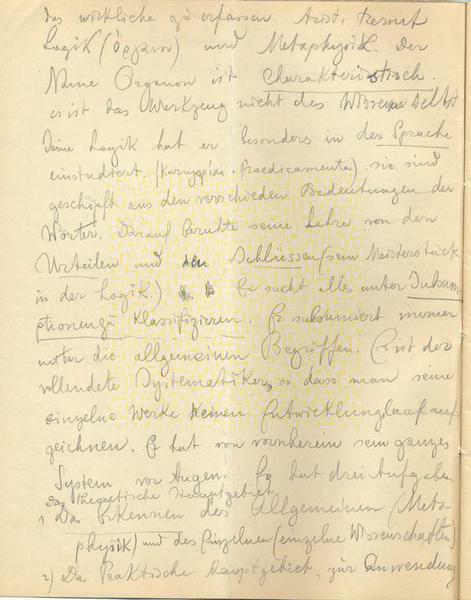 das wirkliche zu erfassen. Arist. trennt
Logik (Όργανον) und Metaphysik. Der
Name Organon ist charakteristisch.
es ist das Werkzeug nicht das Wissen selbst
Seine Logik hat er besonders in der Sprache
einstudiert. (Κατηγορίαι. Praedicamenta) sie sind
geschöpft aus den verschieden Bedeutungen der
Wörter. Darauf beruhte seine Lehre von den
Urteilen und den Schlüssen (sein Meisterstück
in der Logik.) Er sucht alles unter Subsum
ptionen zu Klassifizieren. Er subsumiert immer
unter die allgemeinen Begriffen. Er ist der
vollendete Systematiker, so dass man seine
einzelne Werke keinen Entwicklungslauf auf
zeichnen. Er hat von vornherein sein ganzes
System vor Augen. Er hat drei Aufgaben
Das Theoretische Hauptgebiet
1 Das Erkennen des Allgemeinen (Meta-
physik) und des Einzelnen (einzelne Wissenschaften)
2) Das Praktische Hauptgebiet, zur Anwendung